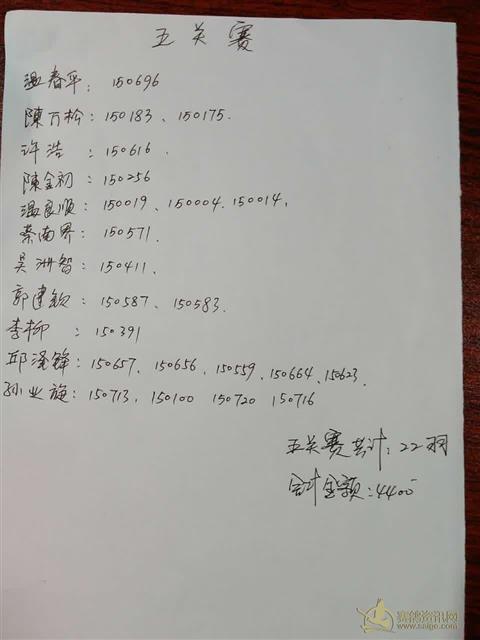 五关赛
温春平：150696
陳万松：150183、150175.
许浩：150616.
陳金初：150256
温良顺：150019、150004.150014,
秦南界：150571.
吴洲智：150411.
郭建钦：150587、150583.
李柳：150391
邱泽锋：150657、150656、150559、150664、150623.
孙业旋：150713, 150100 150720 150716
五关赛共计：22羽
合计金额：4400
赛鸽资讯网
www.saige.com